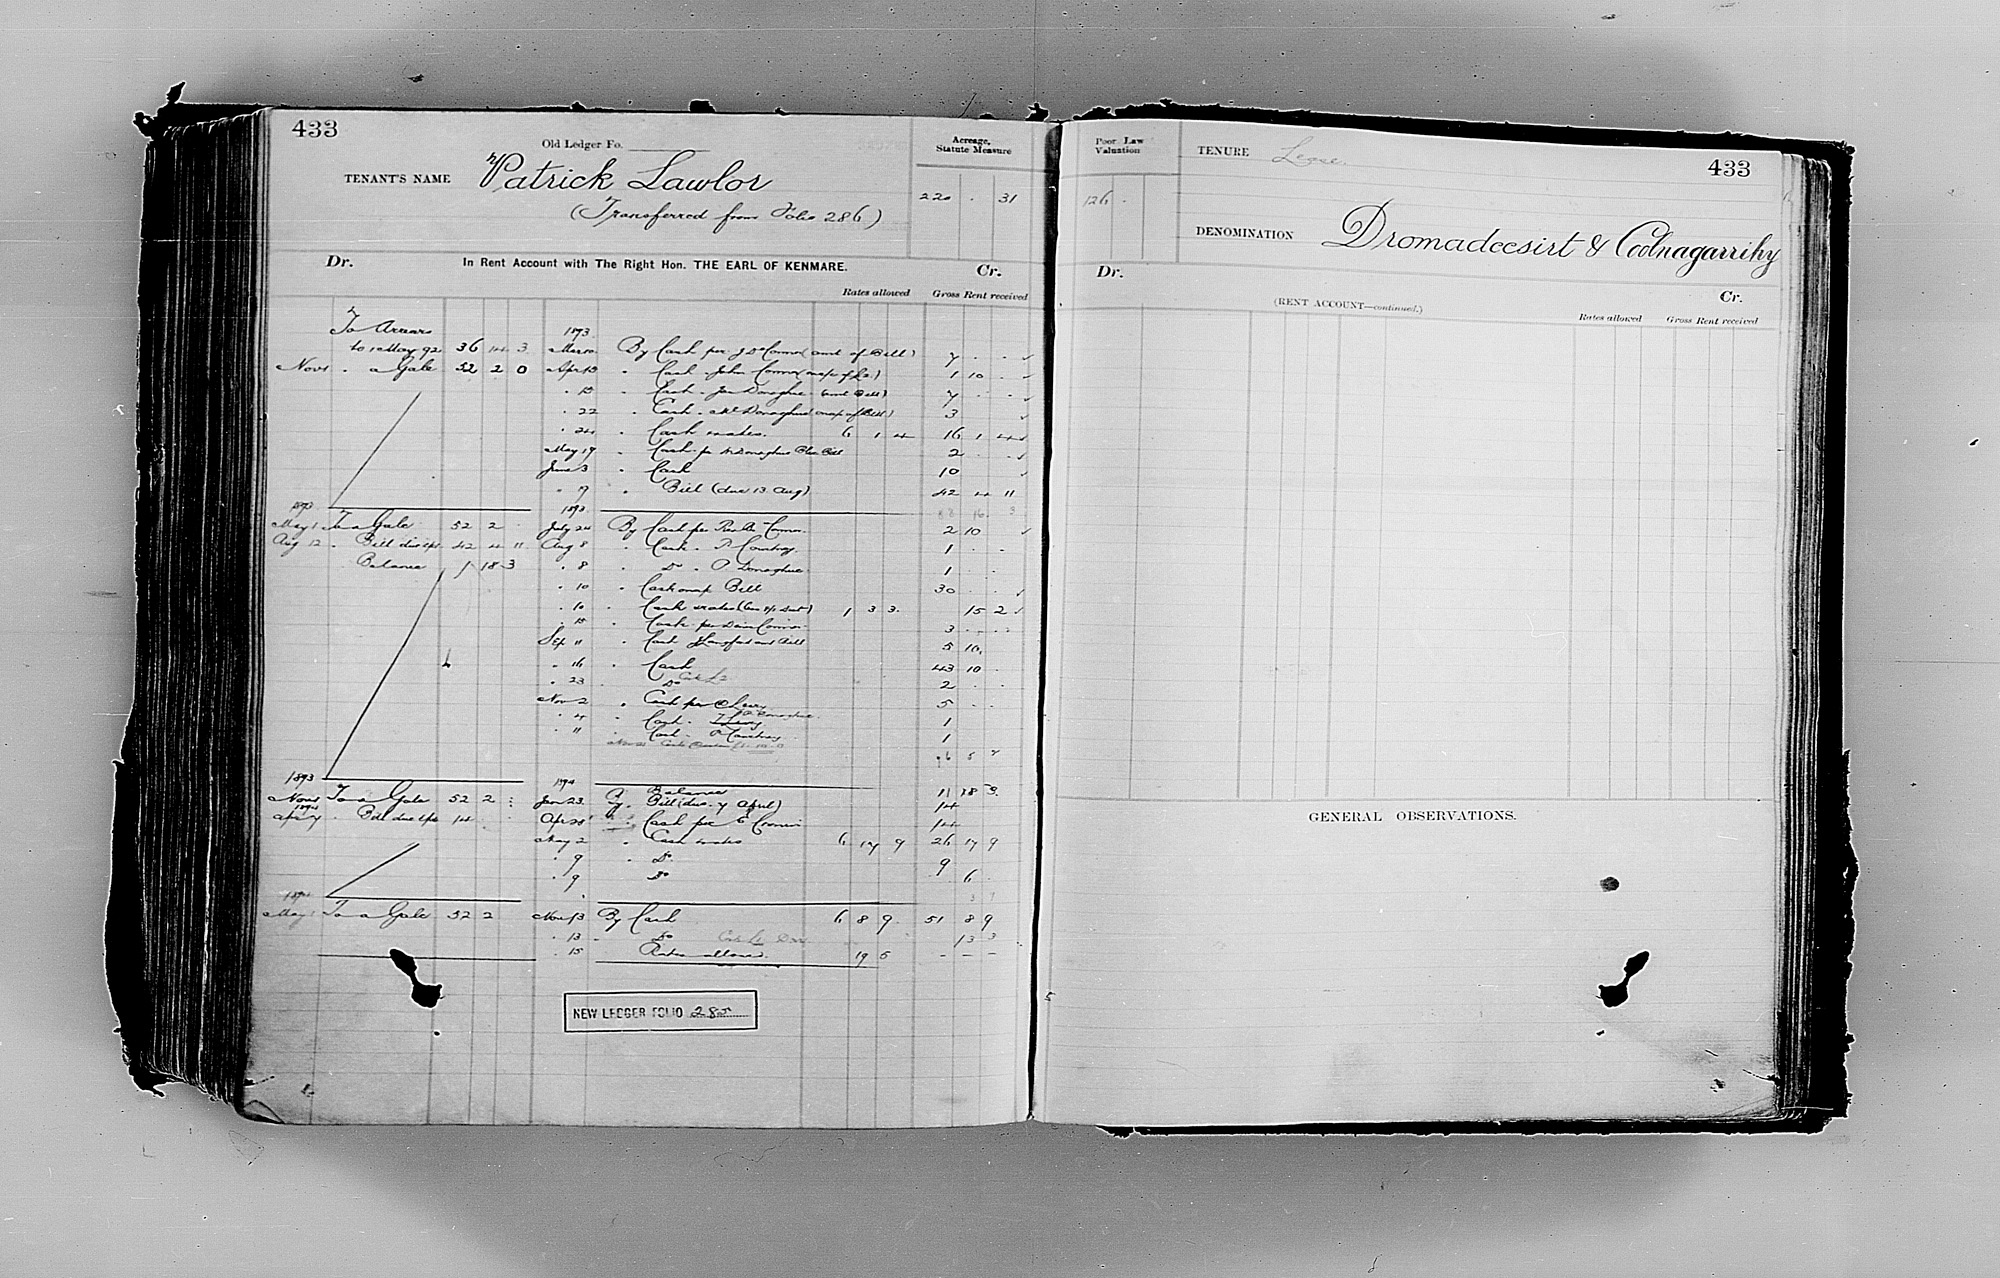 433
Old Ledger Fo.
Acreage, Statute Measure
TENANT'S NAME Patrick Lawlor
220 . 31
(Transferred from Folio 286)
Dr. In Rent Account with The Right Hon. THE EARL OF KENMARE. Cr.
Rates allowed Gross Rent received
To Arrears 1893
to 1 May 92 36 14 3 Mar 10 By Cash per J. O'Connor (amt of Bill) 7 . .
Nov 1 . a Gale 52 2 0 Apr 13 . Cash . John Connor 1 10 .
. 13 . Cash . Donoghue (amt Bill) 7 . .
. 22 . Cash . Donoghue 3
. 24 . Cash & rates. 6 1 4 16 1 4
May 19 . Cash per Donoghue Bill 2 . .
June 3 . Cash 10
. 9 . Bill (due 13 Aug) 42 4 11
1893 1893 16 3
May 1 To a Gale 52 2 . July 24 By Cash per Connor 2 10
Aug 12 . Bill due 42 4 11 Aug 8 . Cash . P Courtney 1 . .
Balance 1 18 3 . 8 . Do . P. Donoghue 1 . .
. 10 . Cash Bill 30 . .
. 10 . Cash & rates 1 3 3 15 2
. 15 . Cash per Connor 3 . .
Sep 11 . Cash Langford amt Bill 5 10
. 16 . Cash 43 10 .
. 23 . Do 2 . .
Nov 2 . Cash per Leary 5 . .
. 4 . Cash . Donoghue 1
. 11 . Cash . P Courtney 1
6 5 7
1893 1894 Balance 11 18 3
Nov 1 To a Gale 52 2 : Jan 23 By Bill (due 7 April) 14
1894
Apl 7 . Bill due 14 Apr 28 . Cash per Cronin 14
May 2 . Cash & rates 6 17 9 26 17 9
. 9 . Do 9
. 9 . Do 6 .
1894
May 1 To a Gale 52 2 Nov 13 By Cash 6 8 9 51 8 9
. 13 . Do 13 3
. 15 Rates allowed. 19 5 - - -
NEW LEDGER FOLIO 285
Poor Law Valuation
TENURE Lease.
433
126 .
DENOMINATION Dromadeesirt & Coolnagarrihy
Dr. (RENT ACCOUNT—continued.) Cr.
Rates allowed Gross Rent received
GENERAL OBSERVATIONS.